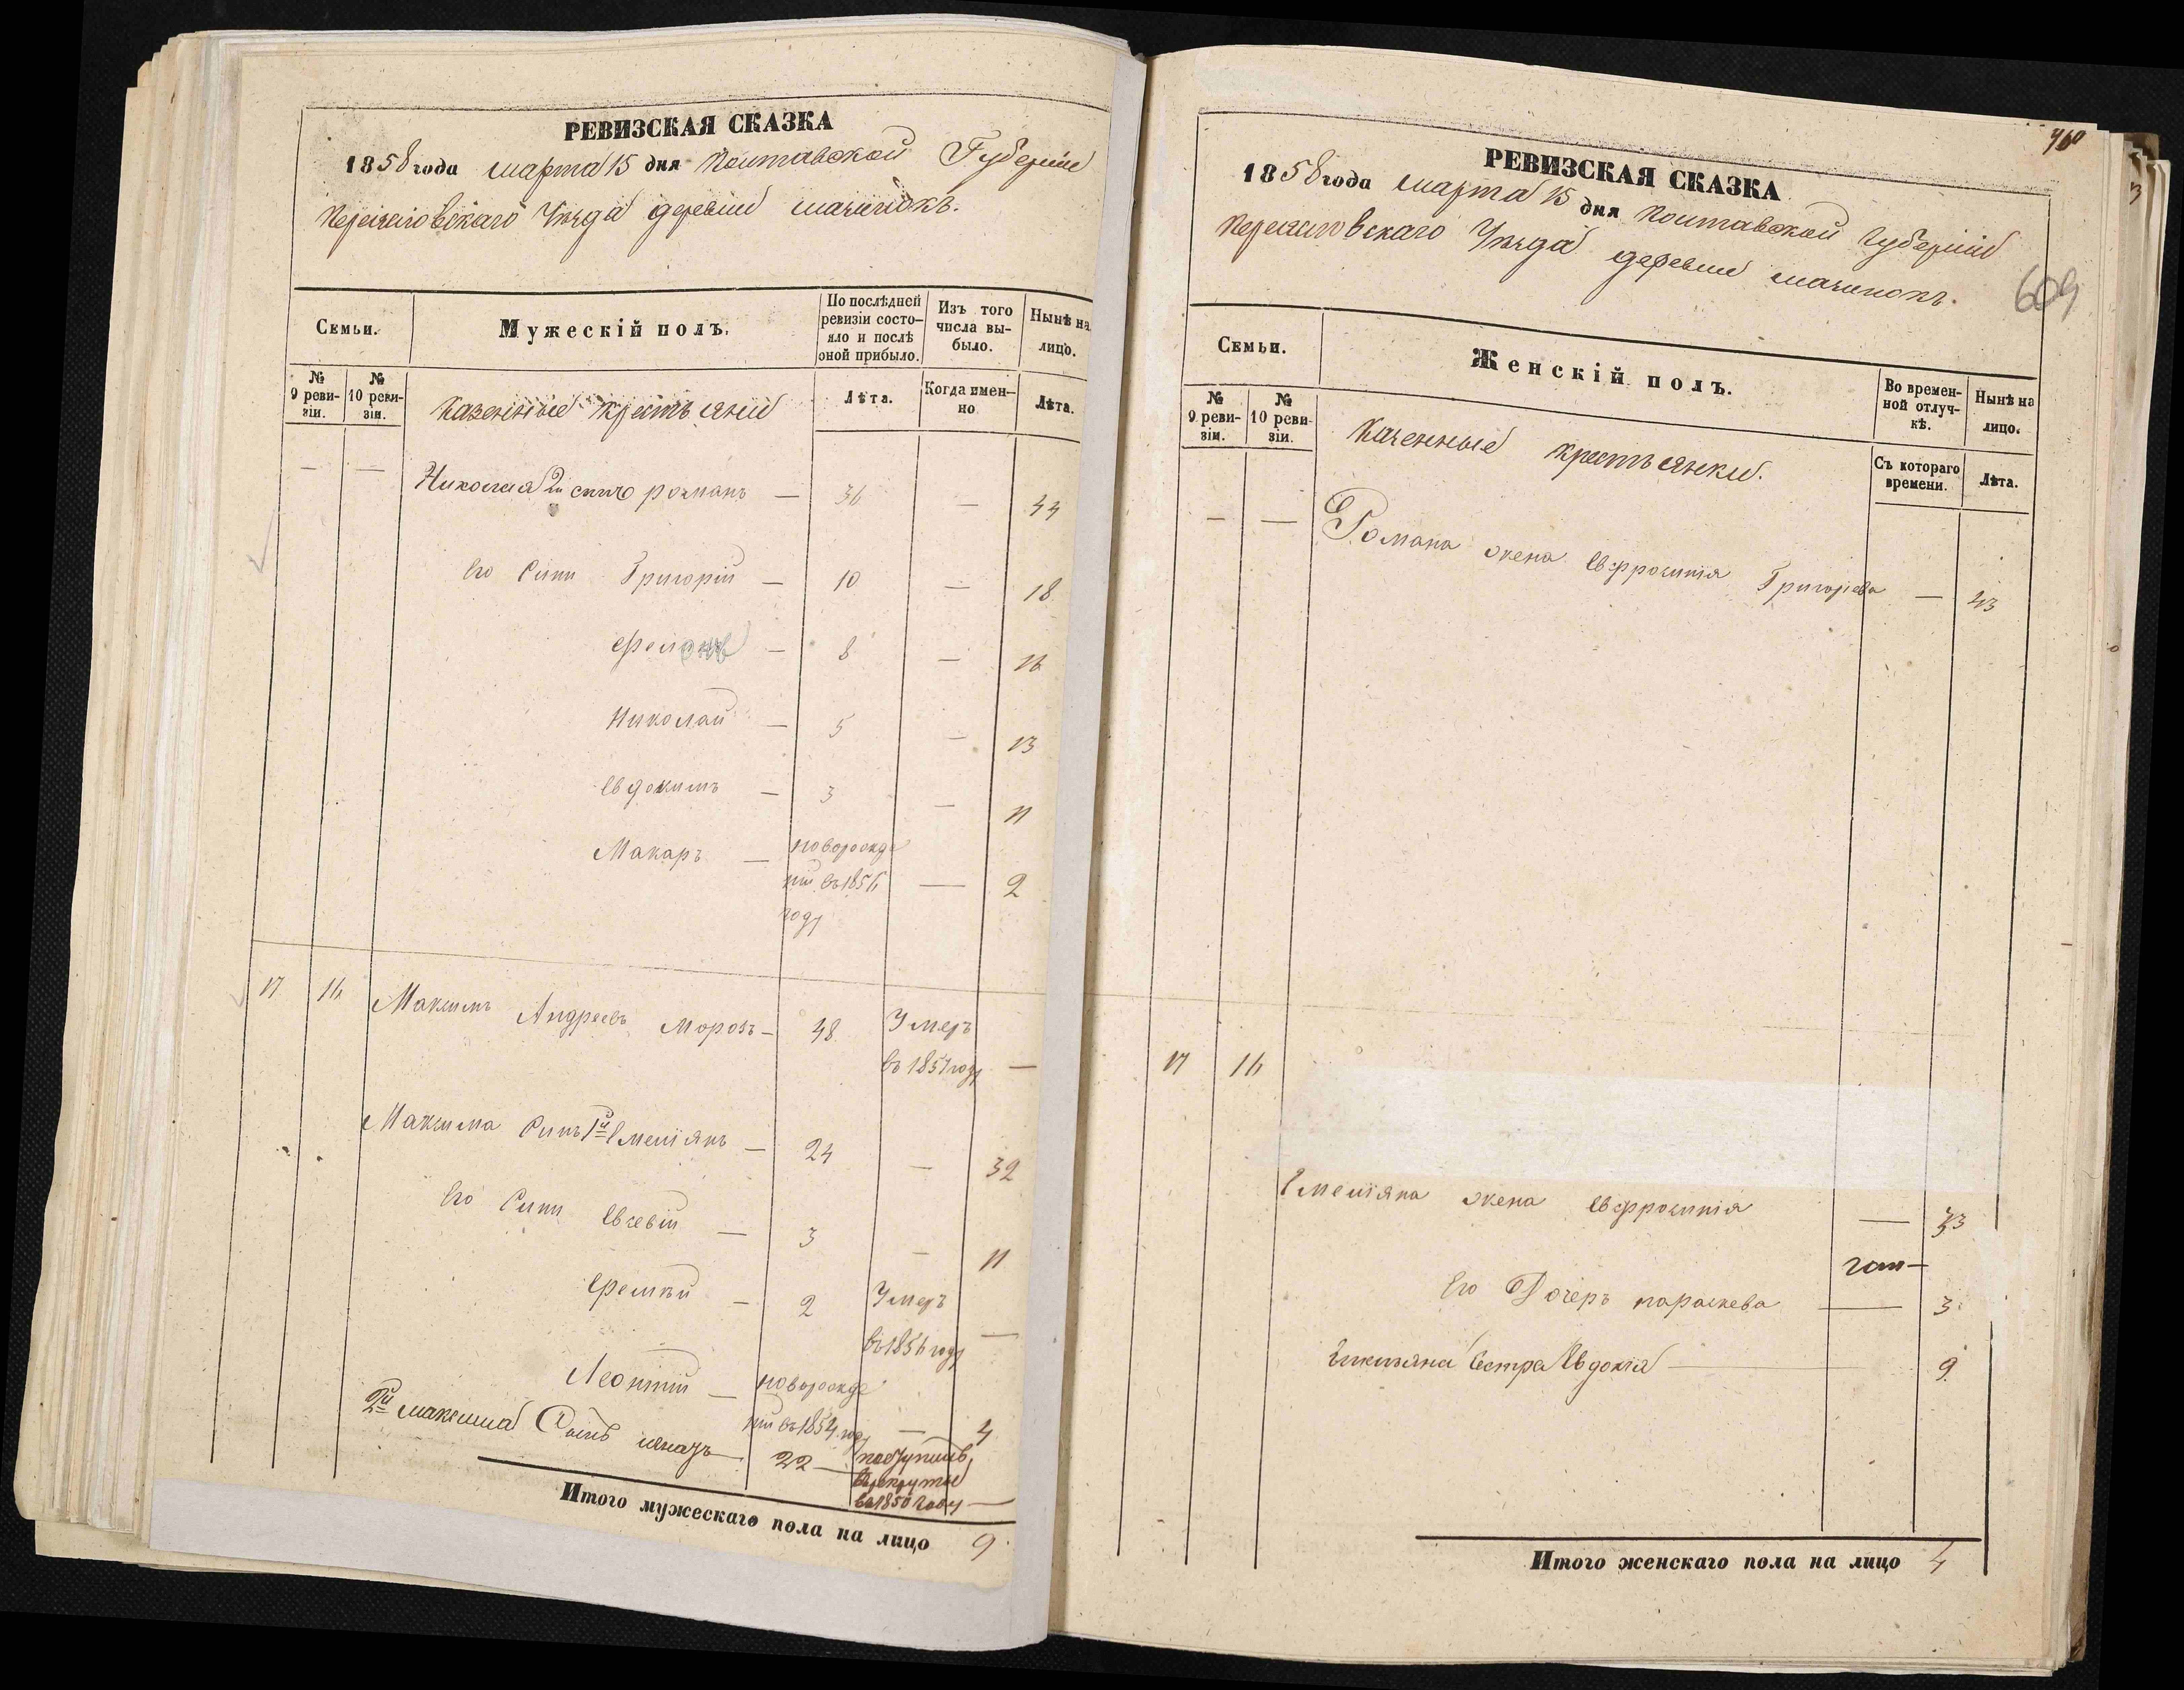 РЕВИЗСКАЯ СКАЗКА
1858 года марта 15 дня Полтавской Губерніи
Уѣзда деревни
Семьи.
Мужескій полъ.
По послѣдней ревизіи состояло и послѣ оной прибыло.
Изъ того числа выбыло.
Нынѣ на лицо.
№ 9 ревизіи.
№ 10 ревизіи.
Казенные крестьяне
Лѣта.
Когда именно
Лѣта.
— — Николая 2й сынъ романъ — 36 — 44
Его Сыни Григорій — 10 — 18
— 8 — 16
Николай — 5 — 13
Евдокимъ — 3 — 11
Макаръ — новорожде
ній въ 1856 — 2
году
17 16 Максимъ Андреевъ Морозъ — 48 Умеръ
въ 1857 году —
Максима Синъ 1й Емеліянъ — 24 — 32
Его Сини Евсевій — 3 — 11
— 2 Умеръ
въ 1856 году —
Леонтій — новорожде
ній въ 1854 году — 4
2й максима Сынъ игнатъ — 22 — поступилъ
в рекруты
въ 1850 году —
Итого мужескаго пола на лицо 9
760
РЕВИЗСКАЯ СКАЗКА
1858 года марта 15 дня Полтавской губерніи
Уѣзда деревни
609
Семьи.
Женскій полъ.
Во временной отлучкѣ.
Нынѣ на лицо.
№ 9 ревизіи.
№ 10 ревизіи.
Казенные крестьянки.
Съ котораго времени.
Лѣта.
— — Романа жена Евфросинія Григоріева — 43
17 16
Емеліяна жена Евфросинія — 33
Его Дочеръ параскева — 3
Емиліяна Сестра Евдокія — 9
Итого женскаго пола на лицо 4